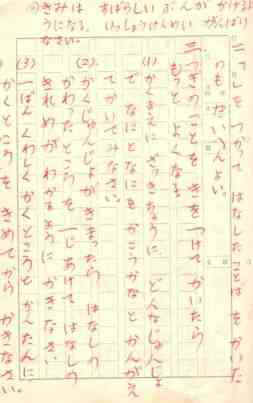 ④きみは すばらしいぶんが かけるよ
うになる。いっしょうけんめい がんばり
なさい。
「 」を つかって はなしたことばを かいた
のも、たいへんよい。
二、つぎのことを きを つけて かいたら
もっと よくなる
(1) かくまえに ざっきちょうに、どんなじゅんじょ
で なにとなにを かこうかな とかんがえ
てかいてみなさい。
(2) かくじゅんじょが きまったら はなしの
かわったところを 一じあけて はなしの
きれめが わかるように かきなさい
(3) 一ばん くわしくかくところと かんたんに
かくところを きめてから かきなさい。